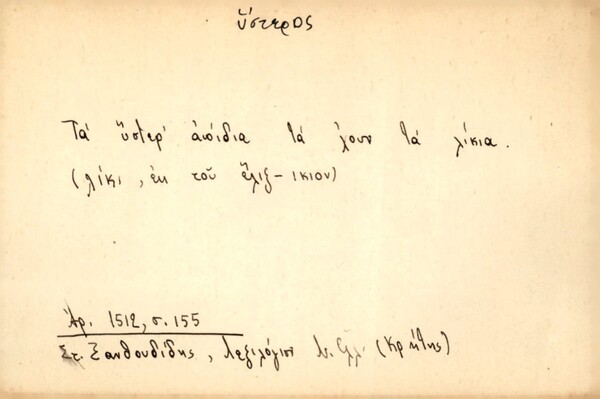 ὕστερος
Τά ὕστερ' ἀπίδια τά 'χουν τά λίκια.
(λίκι, ἐκ τοῦ ἕλιξ-ικιον)
Ἀρ. 1512, σ. 155
Στ. Ξανθουδίδης, Λεξιλόγιον (Κρήτης)